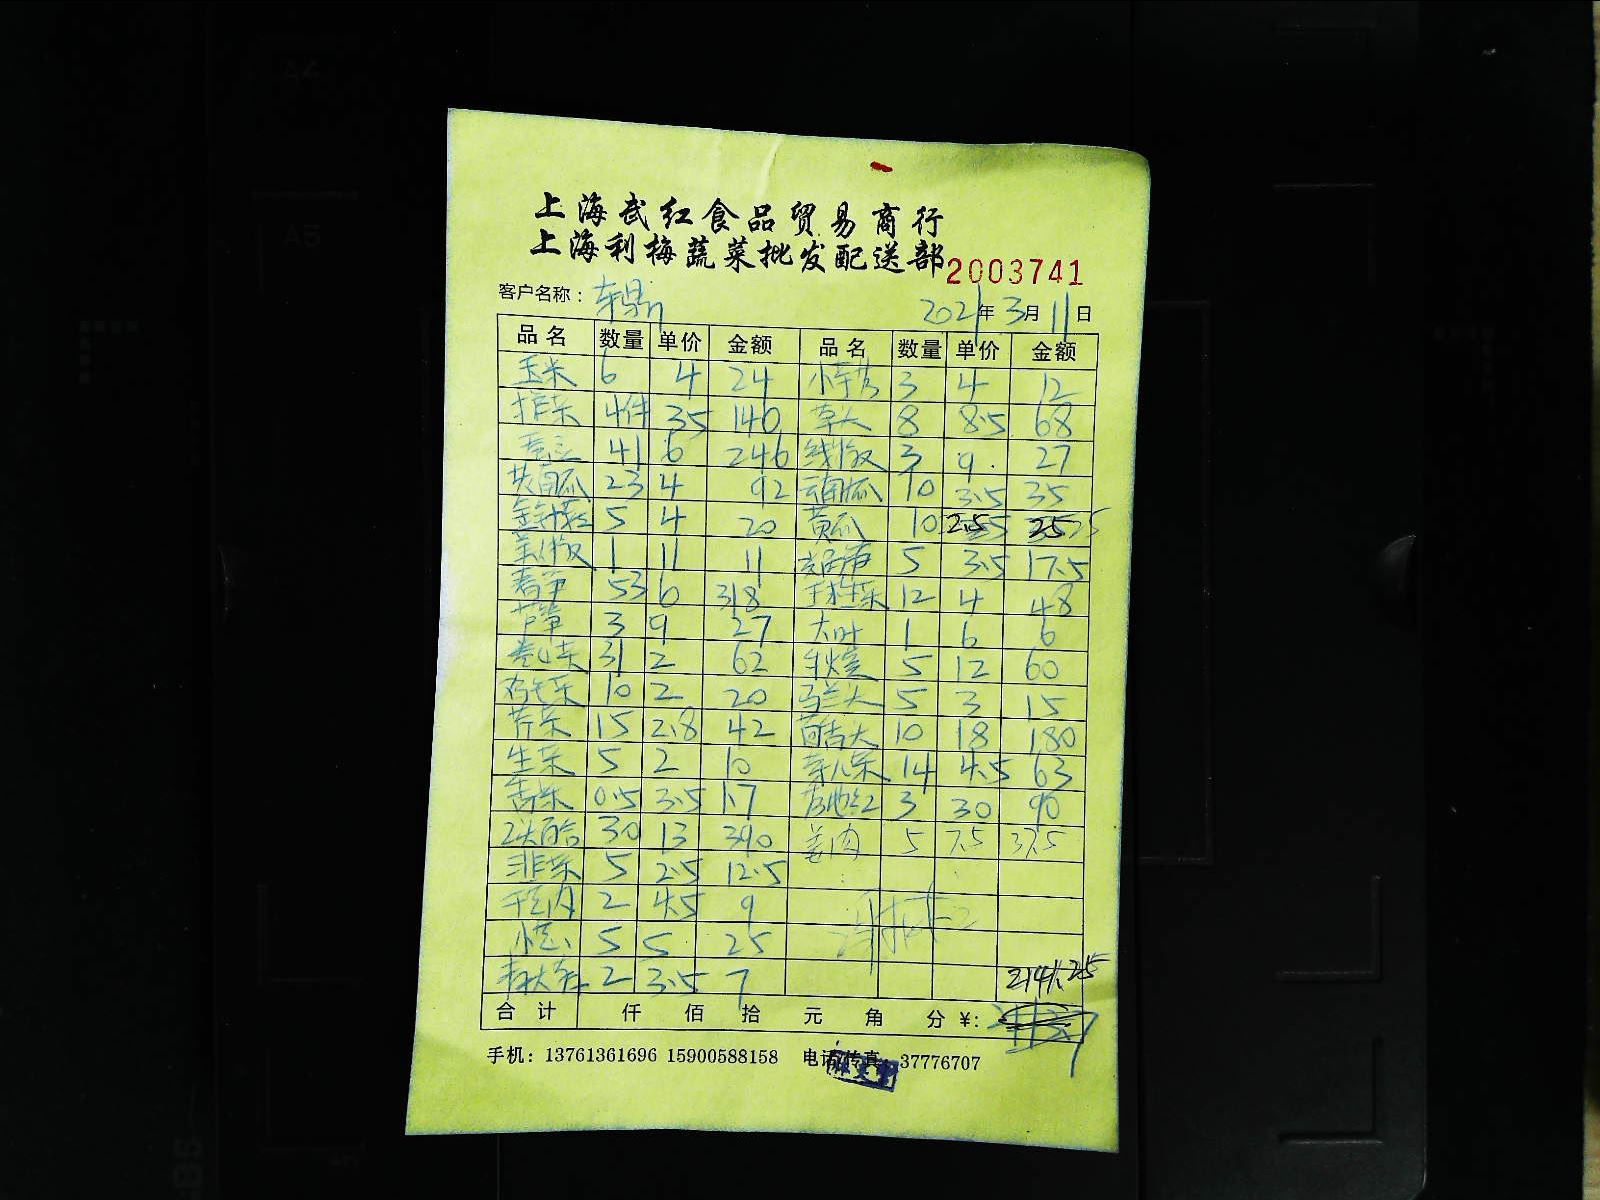 上海武红食品贸易商行
上海利梅蔬菜批发配送部
2003741
客户名称：东鼎 2021年3月11日
品名 数量 单价 金额 品名 数量 单价 金额
玉米 6 4 24 3 4 12
4件 35 140 草头 8 8.5 68
41 6 246 3 9 27
黄南瓜 23 4 92 云南瓜 10 3.5 35
金针菇 5 4 20 黄瓜 10 2.5 25
1 11 11 5 3.5 17.5
春笋 53 6 318 12 4 48
芦笋 3 9 27 大叶 1 6 6
卷心菜 31 2 62 5 12 60
鸡毛菜 10 2 20 马兰头 5 3 15
芹菜 15 2.8 42 10 18 180
生菜 5 2 10 芽儿菜 14 4.5 63
香菜 0.5 3.5 1.7 3 30 90
百合 30 13 390 姜肉 5 7.5 37.5
韭菜 5 2.5 12.5
2 4.5 9
小葱 5 5 25
2 3.5 7
2141.25
合计 仟 佰 拾 元 角 分 ¥:
手机：13761361696 15900588158 电话/传真：37776707